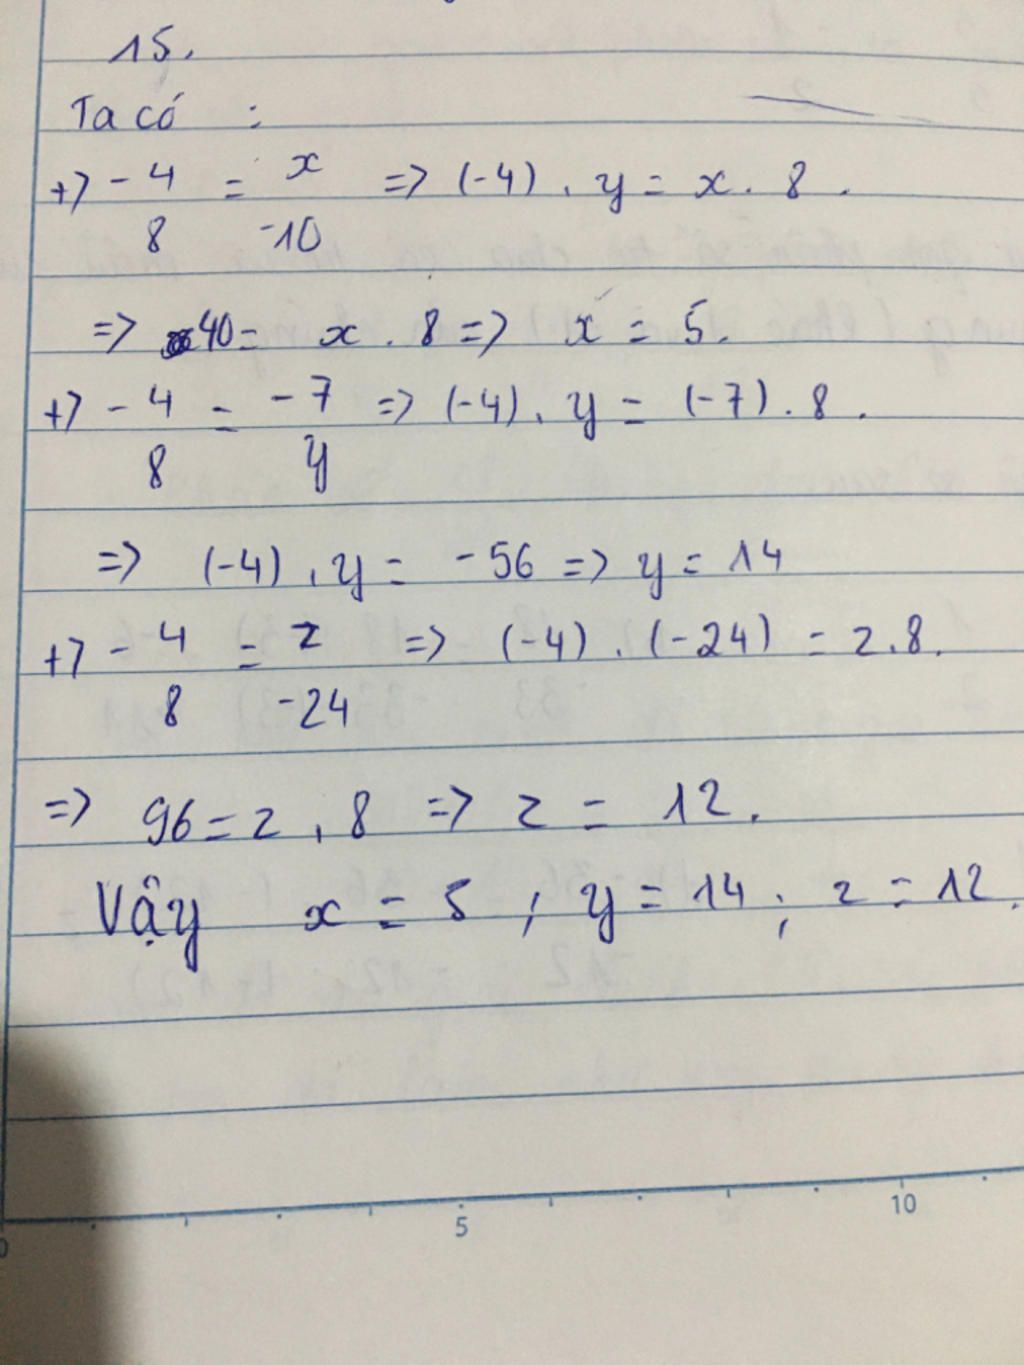 15.
Ta có :
+) -4/8 = x/-10 => (-4) . y = x . 8 .
=> 40 = x . 8 => x = 5.
+) -4/8 = -7/y => (-4) . y = (-7) . 8 .
=> (-4) . y = -56 => y = 14
+) -4/8 = z/-24 => (-4) . (-24) = z . 8 .
=> 96 = z . 8 => z = 12 .
Vậy x = 5 ; y = 14 ; z = 12 .
0 5 10